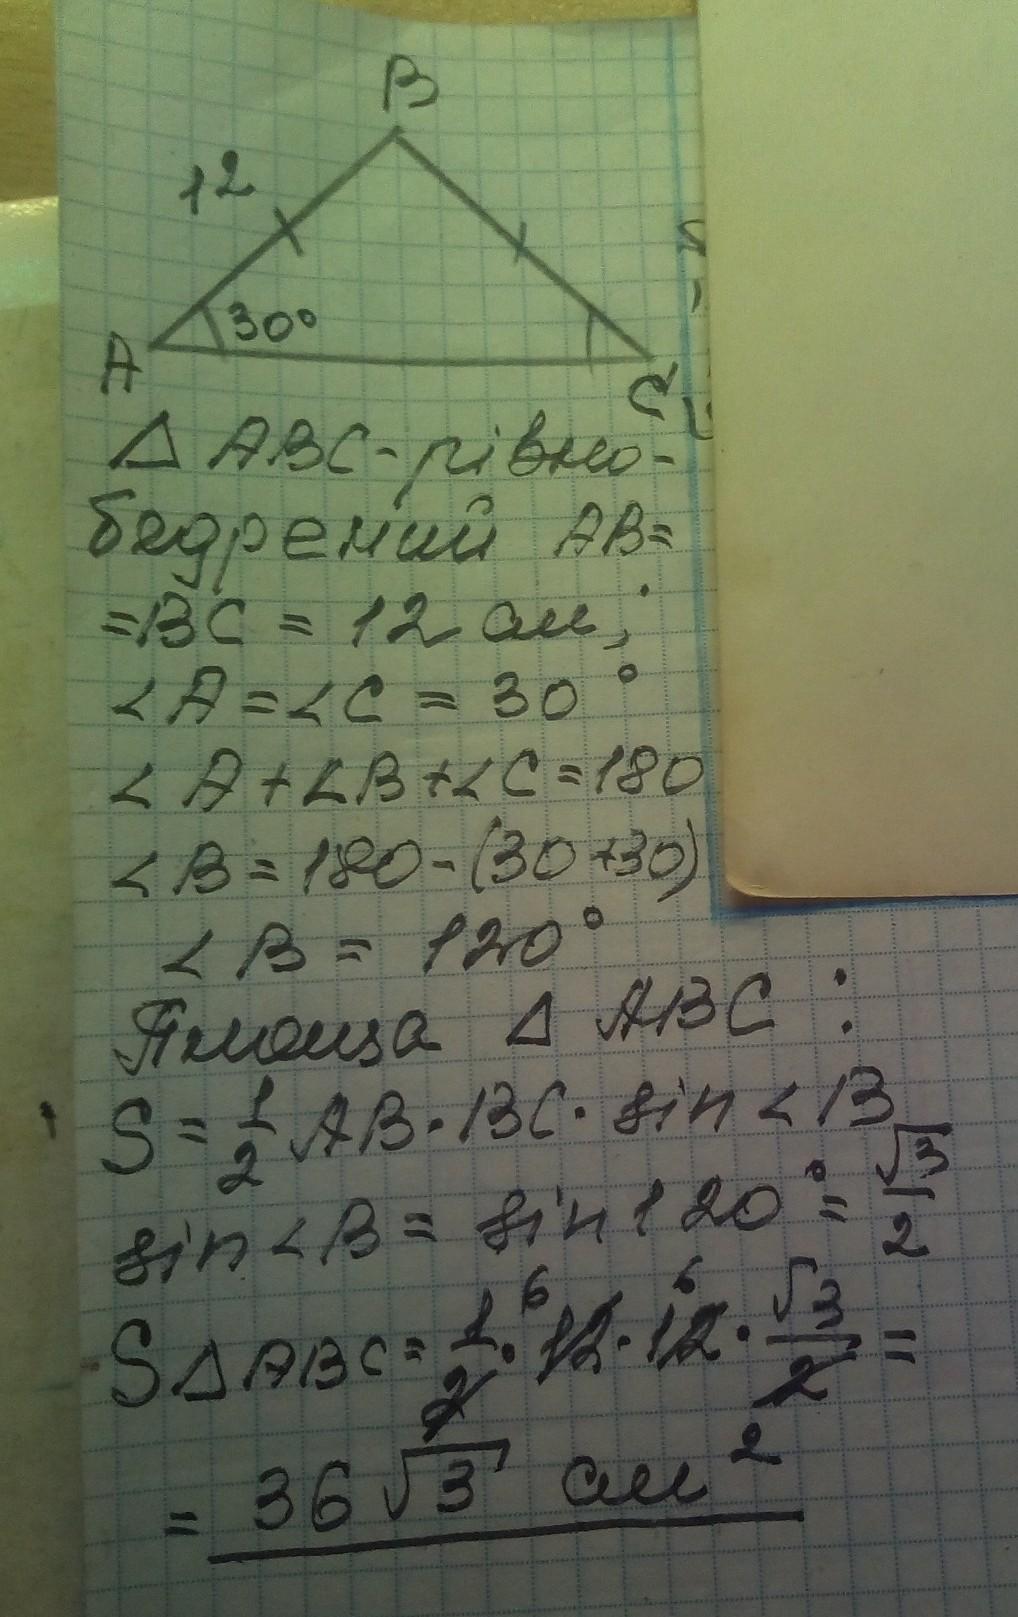 B
12
30°
A
C
Δ ABC - рівно-
бедрений AB=
=BC = 12 см;
<A = <C = 30°
<A + <B + <C = 180
<B = 180 - (30 + 30)
<B = 120°
Площа Δ ABC :
S = 1/2 AB · BC · sin < B
sin < B = sin 120° = √3/2
6 6
S Δ ABC = 1/2 · 12 · 12 · √3/2 =
= 36 √3 см²